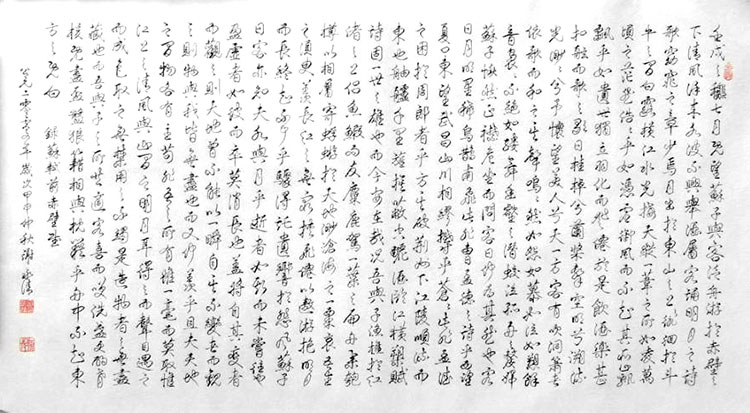 壬戌之秋七月既望蘇子與客泛舟遊於赤壁之
下清風徐來水波不興舉酒屬客誦明月之詩
歌窈窕之章少焉月出於東山之上徘徊於斗
牛之間白露橫江水光接天縱一葦之所如凌萬
頃之茫然浩浩乎如憑虛御風而不知其所止飄
飄乎如遺世獨立羽化而登仙於是飲酒樂甚
扣舷而歌之歌曰桂棹兮蘭槳擊空明兮溯流
光渺渺兮予懷望美人兮天一方客有吹洞簫者
倚歌而和之其聲嗚嗚然如怨如慕如泣如訴餘
音裊裊不絕如縷舞幽壑之潛蛟泣孤舟之嫠婦
蘇子愀然正襟危坐而問客曰何為其然也客
曰月明星稀烏鵲南飛此非曹孟德之詩乎西望
夏口東望武昌山川相繆鬱乎蒼蒼此非孟德
之困於周郎者乎方其破荊州下江陵順流而
東也舳艫千里旌旗蔽空釃酒臨江橫槊賦
詩固一世之雄也而今安在哉況吾與子漁樵於江
渚之上侶魚蝦而友麋鹿駕一葉之扁舟舉匏
樽以相屬寄蜉蝣於天地渺滄海之一粟哀吾生
之須臾羨長江之無窮挾飛仙以遨遊抱明月
而長終知不可乎驟得託遺響於悲風蘇子
曰客亦知夫水與月乎逝者如斯而未嘗往也
盈虛者如彼而卒莫消長也蓋將自其變者
而觀之則天地曾不能以一瞬自其不變者而觀
之則物與我皆無盡也而又何羨乎且夫天地
之間物各有主苟非吾之所有雖一毫而莫取惟
江上之清風與山間之明月耳得之而為聲目遇之
而成色取之無禁用之不竭是造物者之無盡
藏也而吾與子之所共適客喜而笑洗盞更酌肴
核既盡杯盤狼藉相與枕藉乎舟中不知東
方之既白 錄蘇軾前赤壁賦
公元二零零四年歲次甲申仲秋謝